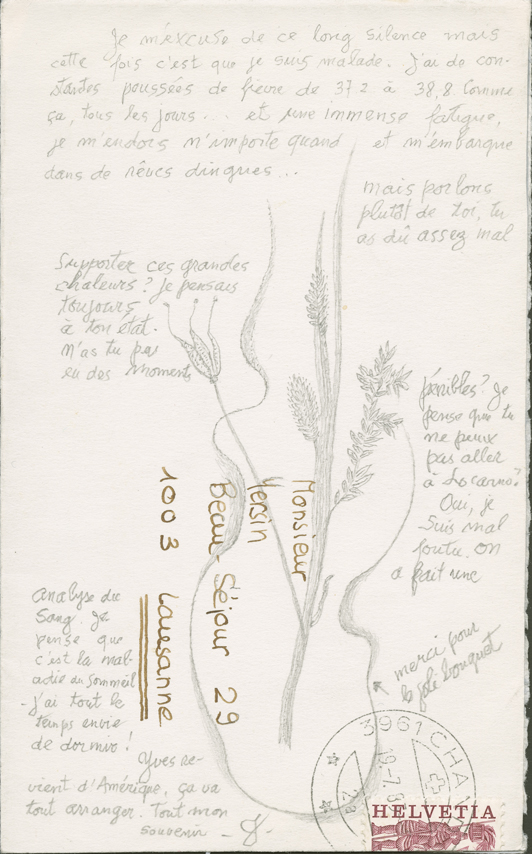 Je m'excuse de ce long silence mais
cette fois c'est que je suis malade. J'ai de con-
stantes poussées de fièvre de 37.2 à 38,8. Comme
ça, tous les jours... et une immense fatigue,
je m'endors n'importe quand et m'embarque
dans de rêves dingues...
mais parlons
plutôt de toi, tu
as dû assez mal
Supporter ces grandes
chaleurs? Je pensais
toujours
à ton état.
N'as tu pas
eu des moments
pénibles? Je
pense que tu
ne peux
pas aller
à Locarno?
Oui, je
suis mal
foutu. On
a fait une
analyse du
Sang. Je
pense que
c'est la mal-
adie du Sommeil
- j'ai tout le
temps envie
de dormir!
Yves re-
vient d'Amérique, ça va
tout arranger. Tout mon
souvenir
merci pour
le joli bouquet
Monsieur
Yersin
Beau-Séjour 29
1003 Lausanne
3961 CHA
19.-7.8
HELVETIA